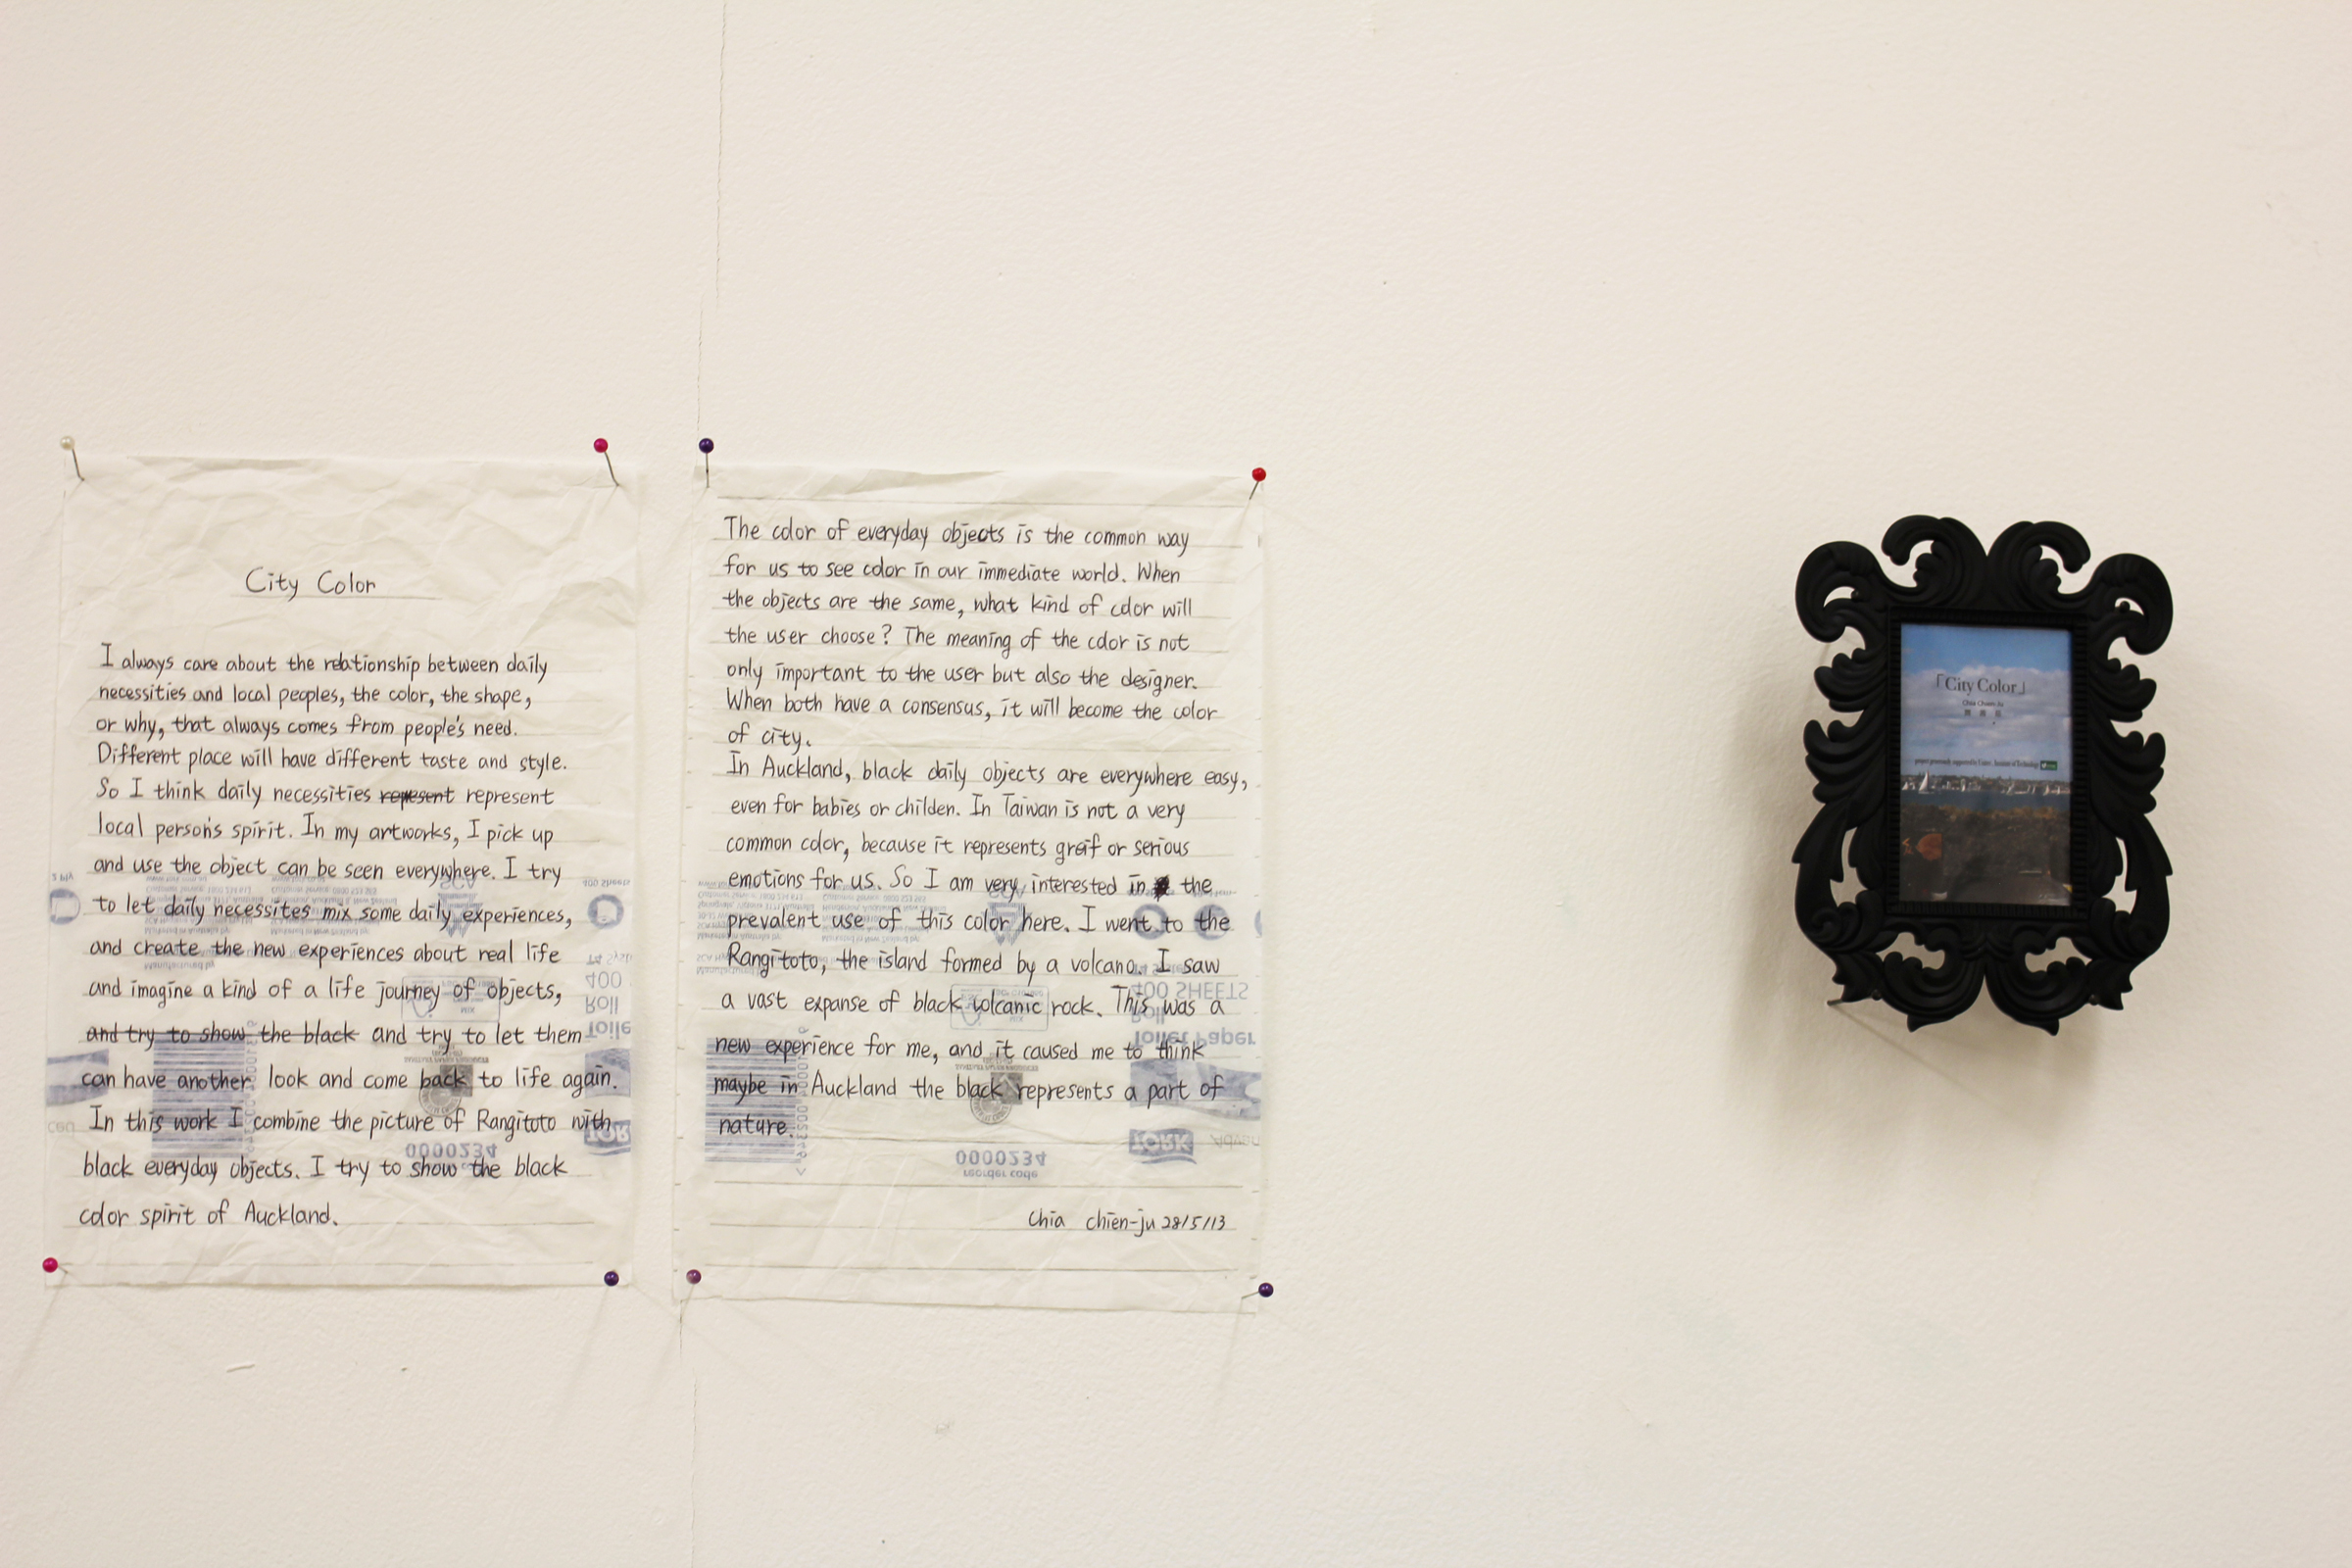 City Color
I always care about the relationship between daily
necessities and local peoples, the color, the shape,
or why, that always comes from people's need.
Different place will have different taste and style.
So I think daily necessities represent represent
local person's spirit. In my artworks, I pick up
and use the object can be seen everywhere. I try
to let daily necessites mix some daily experiences,
and create the new experiences about real life
and imagine a kind of a life journey of objects,
and try to show the black and try to let them
can have another look and come back to life again.
In this work I combine the picture of Rangitoto with
black everyday objects. I try to show the black
color spirit of Auckland.
2 Ply
400 Sheets
400
Roll
Toile
TOR
0000234
The color of everyday objects is the common way
for us to see color in our immediate world. When
the objects are the same, what kind of color will
the user choose? The meaning of the color is not
only important to the user but also the designer.
When both have a consensus, it will become the color
of city.
In Auckland, black daily objects are everywhere easy,
even for babies or childen. In Taiwan is not a very
common color, because it represents greif or serious
emotions for us. So I am very interested in the
prevalent use of this color here. I went to the
Rangitoto, the island formed by a volcano. I saw
a vast expanse of black volcanic rock. This was a
new experience for me, and it caused me to think
maybe in Auckland the black represents a part of
nature.
Chia chien-ju 28/5/13
400 SHEETS
Roll
Toilet Paper
TORK Advan
0000234
reorder code
「City Color」
Chia Chien-Ju